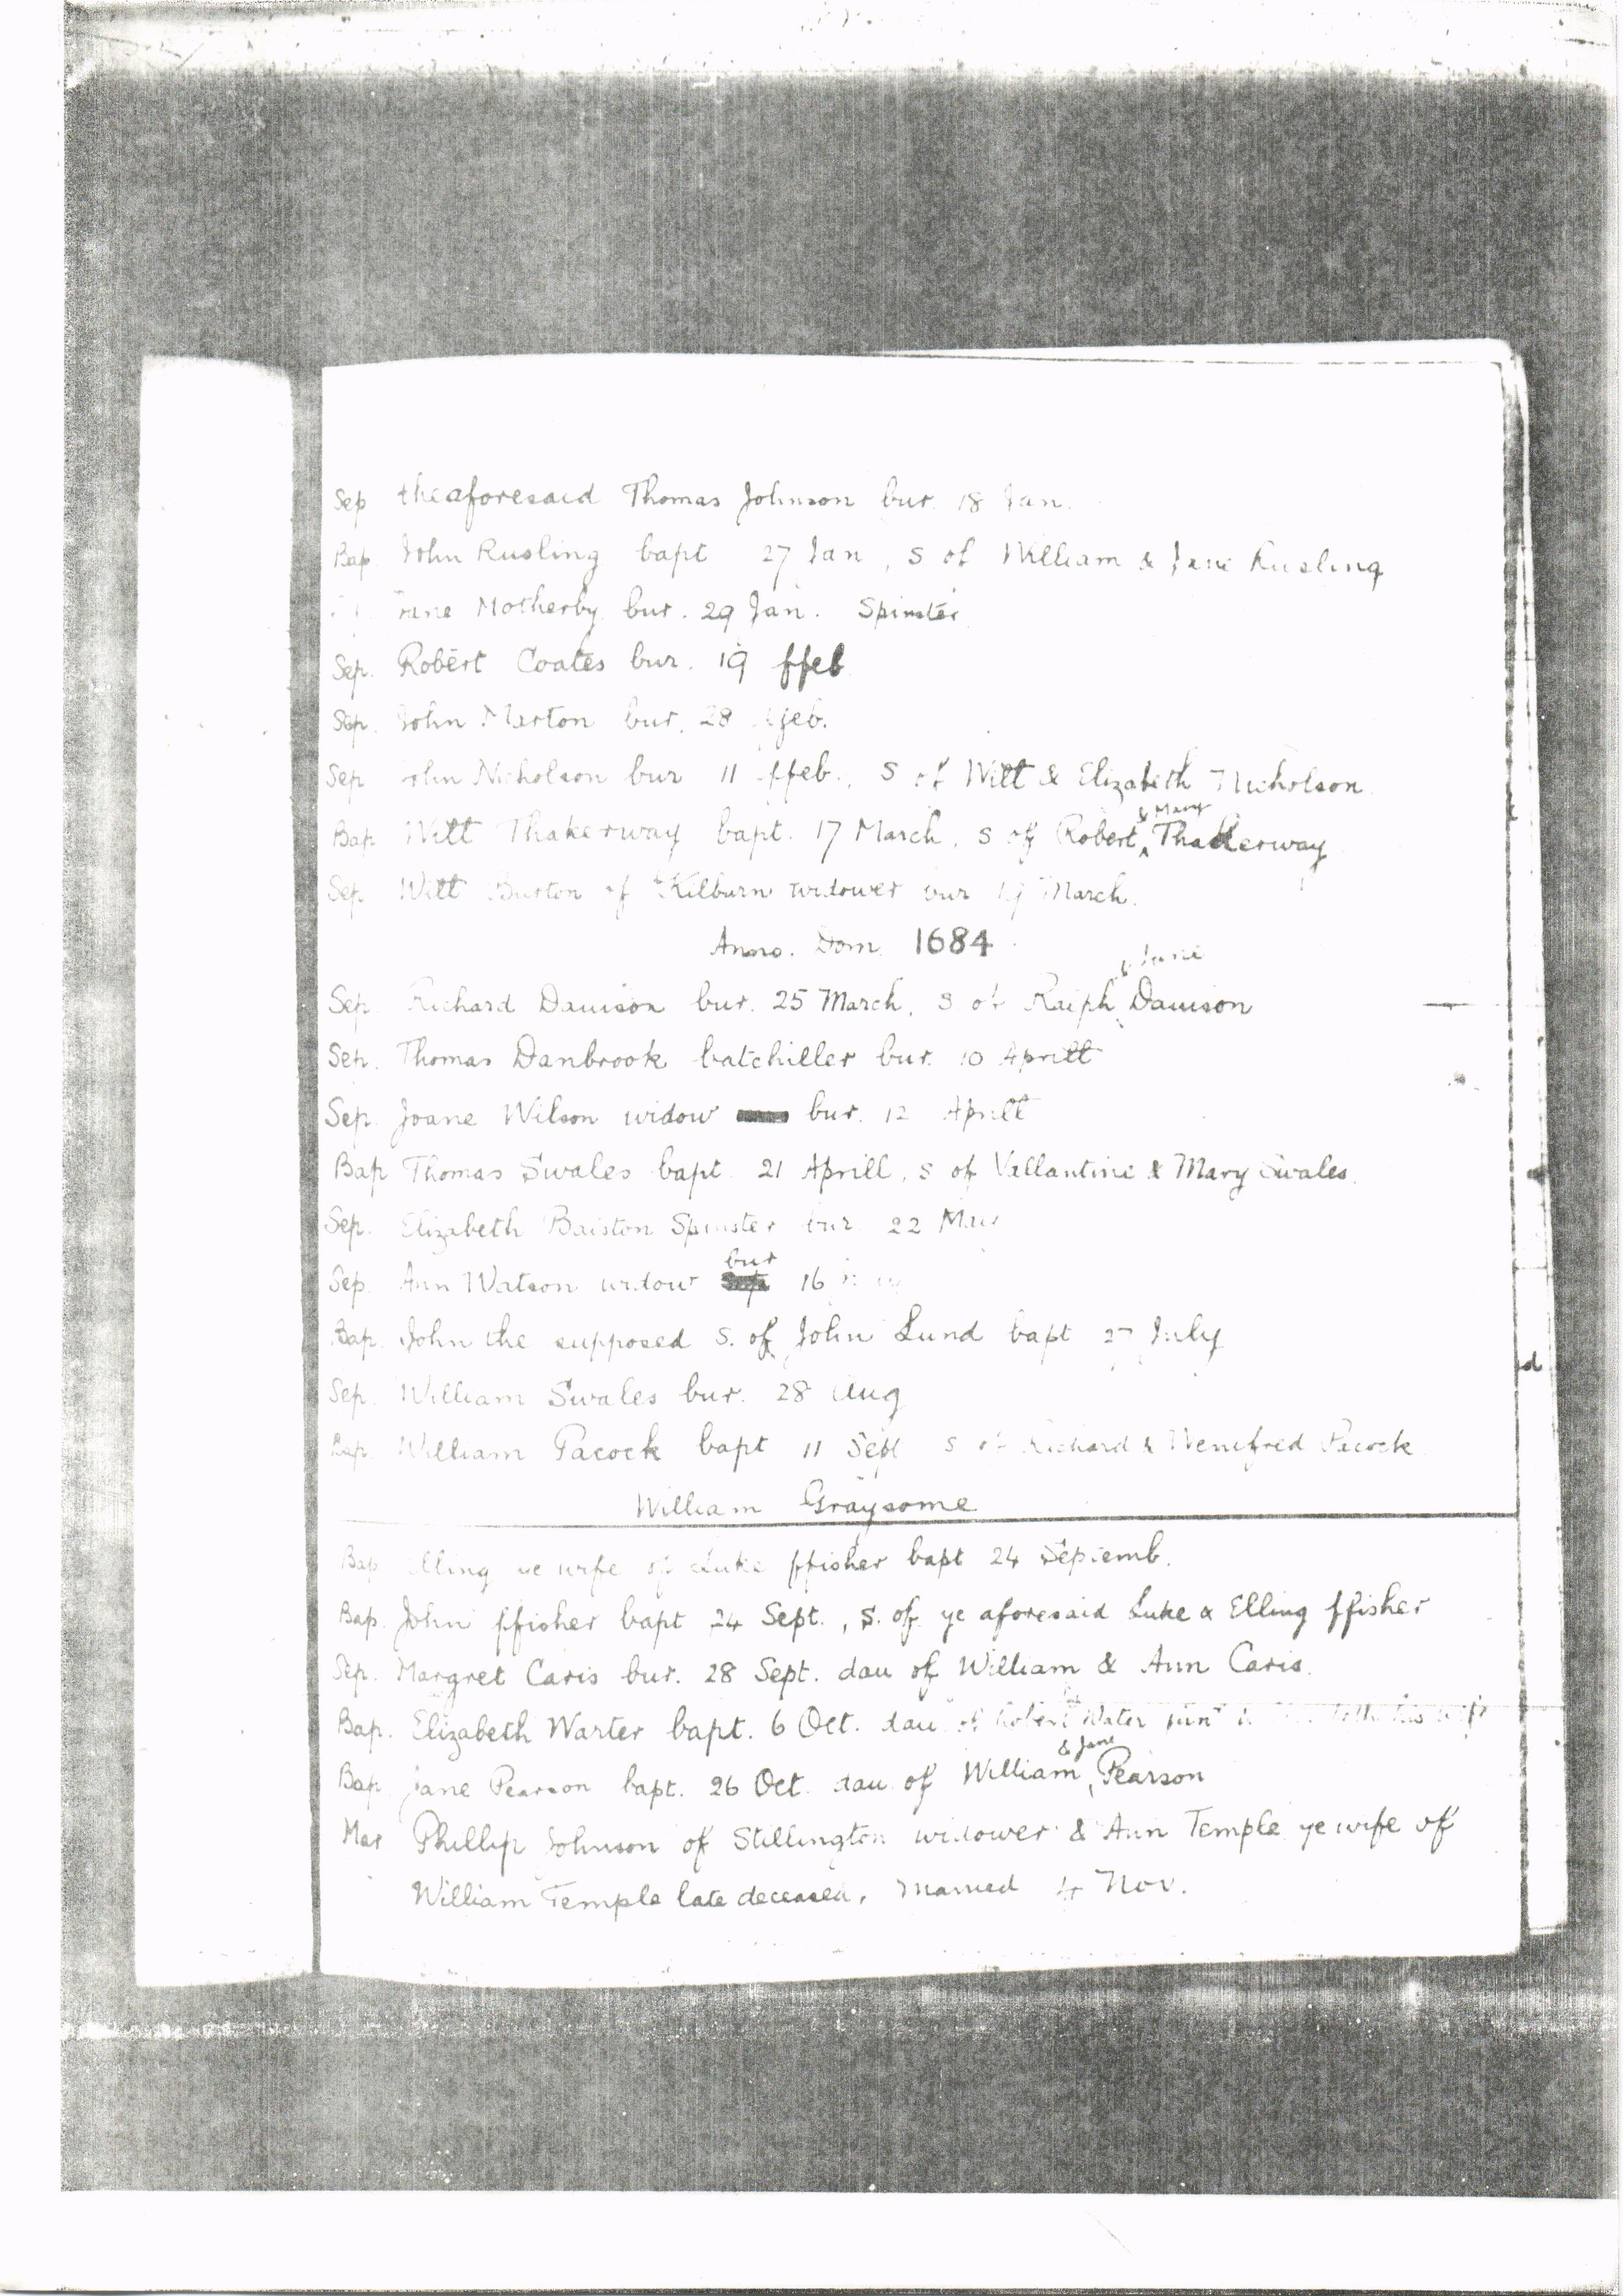 Sep theaforesaid Thomas Johnson bur. 18 Jan.
Bap. John Rusling bapt 27 Jan, s of William & Jane Rusling
Motherby bur. 29 Jan. Spinster
Sep. Robert Coates bur. 19 ffeb
Sep. John Marton bur. 28 ffeb.
Sep John Nicholson bur 11 ffeb., s of Witt & Elizabeth Nicholson.
Bap Witt Thakerway bapt. 17 March, s of Robert & Mary Thakerway
Sep Witt Burton of Kilburn widower bur 19 March.
Anno. Dom 1684
Sep. Richard Davison bur. 25 March, s of Ralph & Jane Davison
Sep. Thomas Danbrook batchiller bur. 10 Aprill
Sep. Joane Wilson widow bur. 12 Aprill
Bap Thomas Swales bapt. 21 Aprill, s of Vallantine & Mary Swales.
Sep. Elizabeth Baiston Spinster bur 22 May
Sep. Ann Watson widow bur 16
Bap. John the supposed s. of John Lund bapt July
Sep. William Swales bur. 28 Aug
Bap. William Pacock bapt 11 Sept s of Richard & Wenifred Pacock
William Graysome
Bap Elling ye wife of Luke ffisher bapt 24 Septemb.
Bap. John ffisher bapt 24 Sept., s. of ye aforesaid Luke & Elling ffisher
Sep. Margret Caris bur. 28 Sept. dau of William & Ann Caris.
Bap. Elizabeth Warter bapt. 6 Oct. dau of Robert Water junr his wife
Bap. Jane Pearson bapt. 26 Oct. dau of William & Jane Pearson
Mar Phillip Johnson of Stillington widower & Ann Temple ye wife of
William Temple late deceased, married 4 Nov.